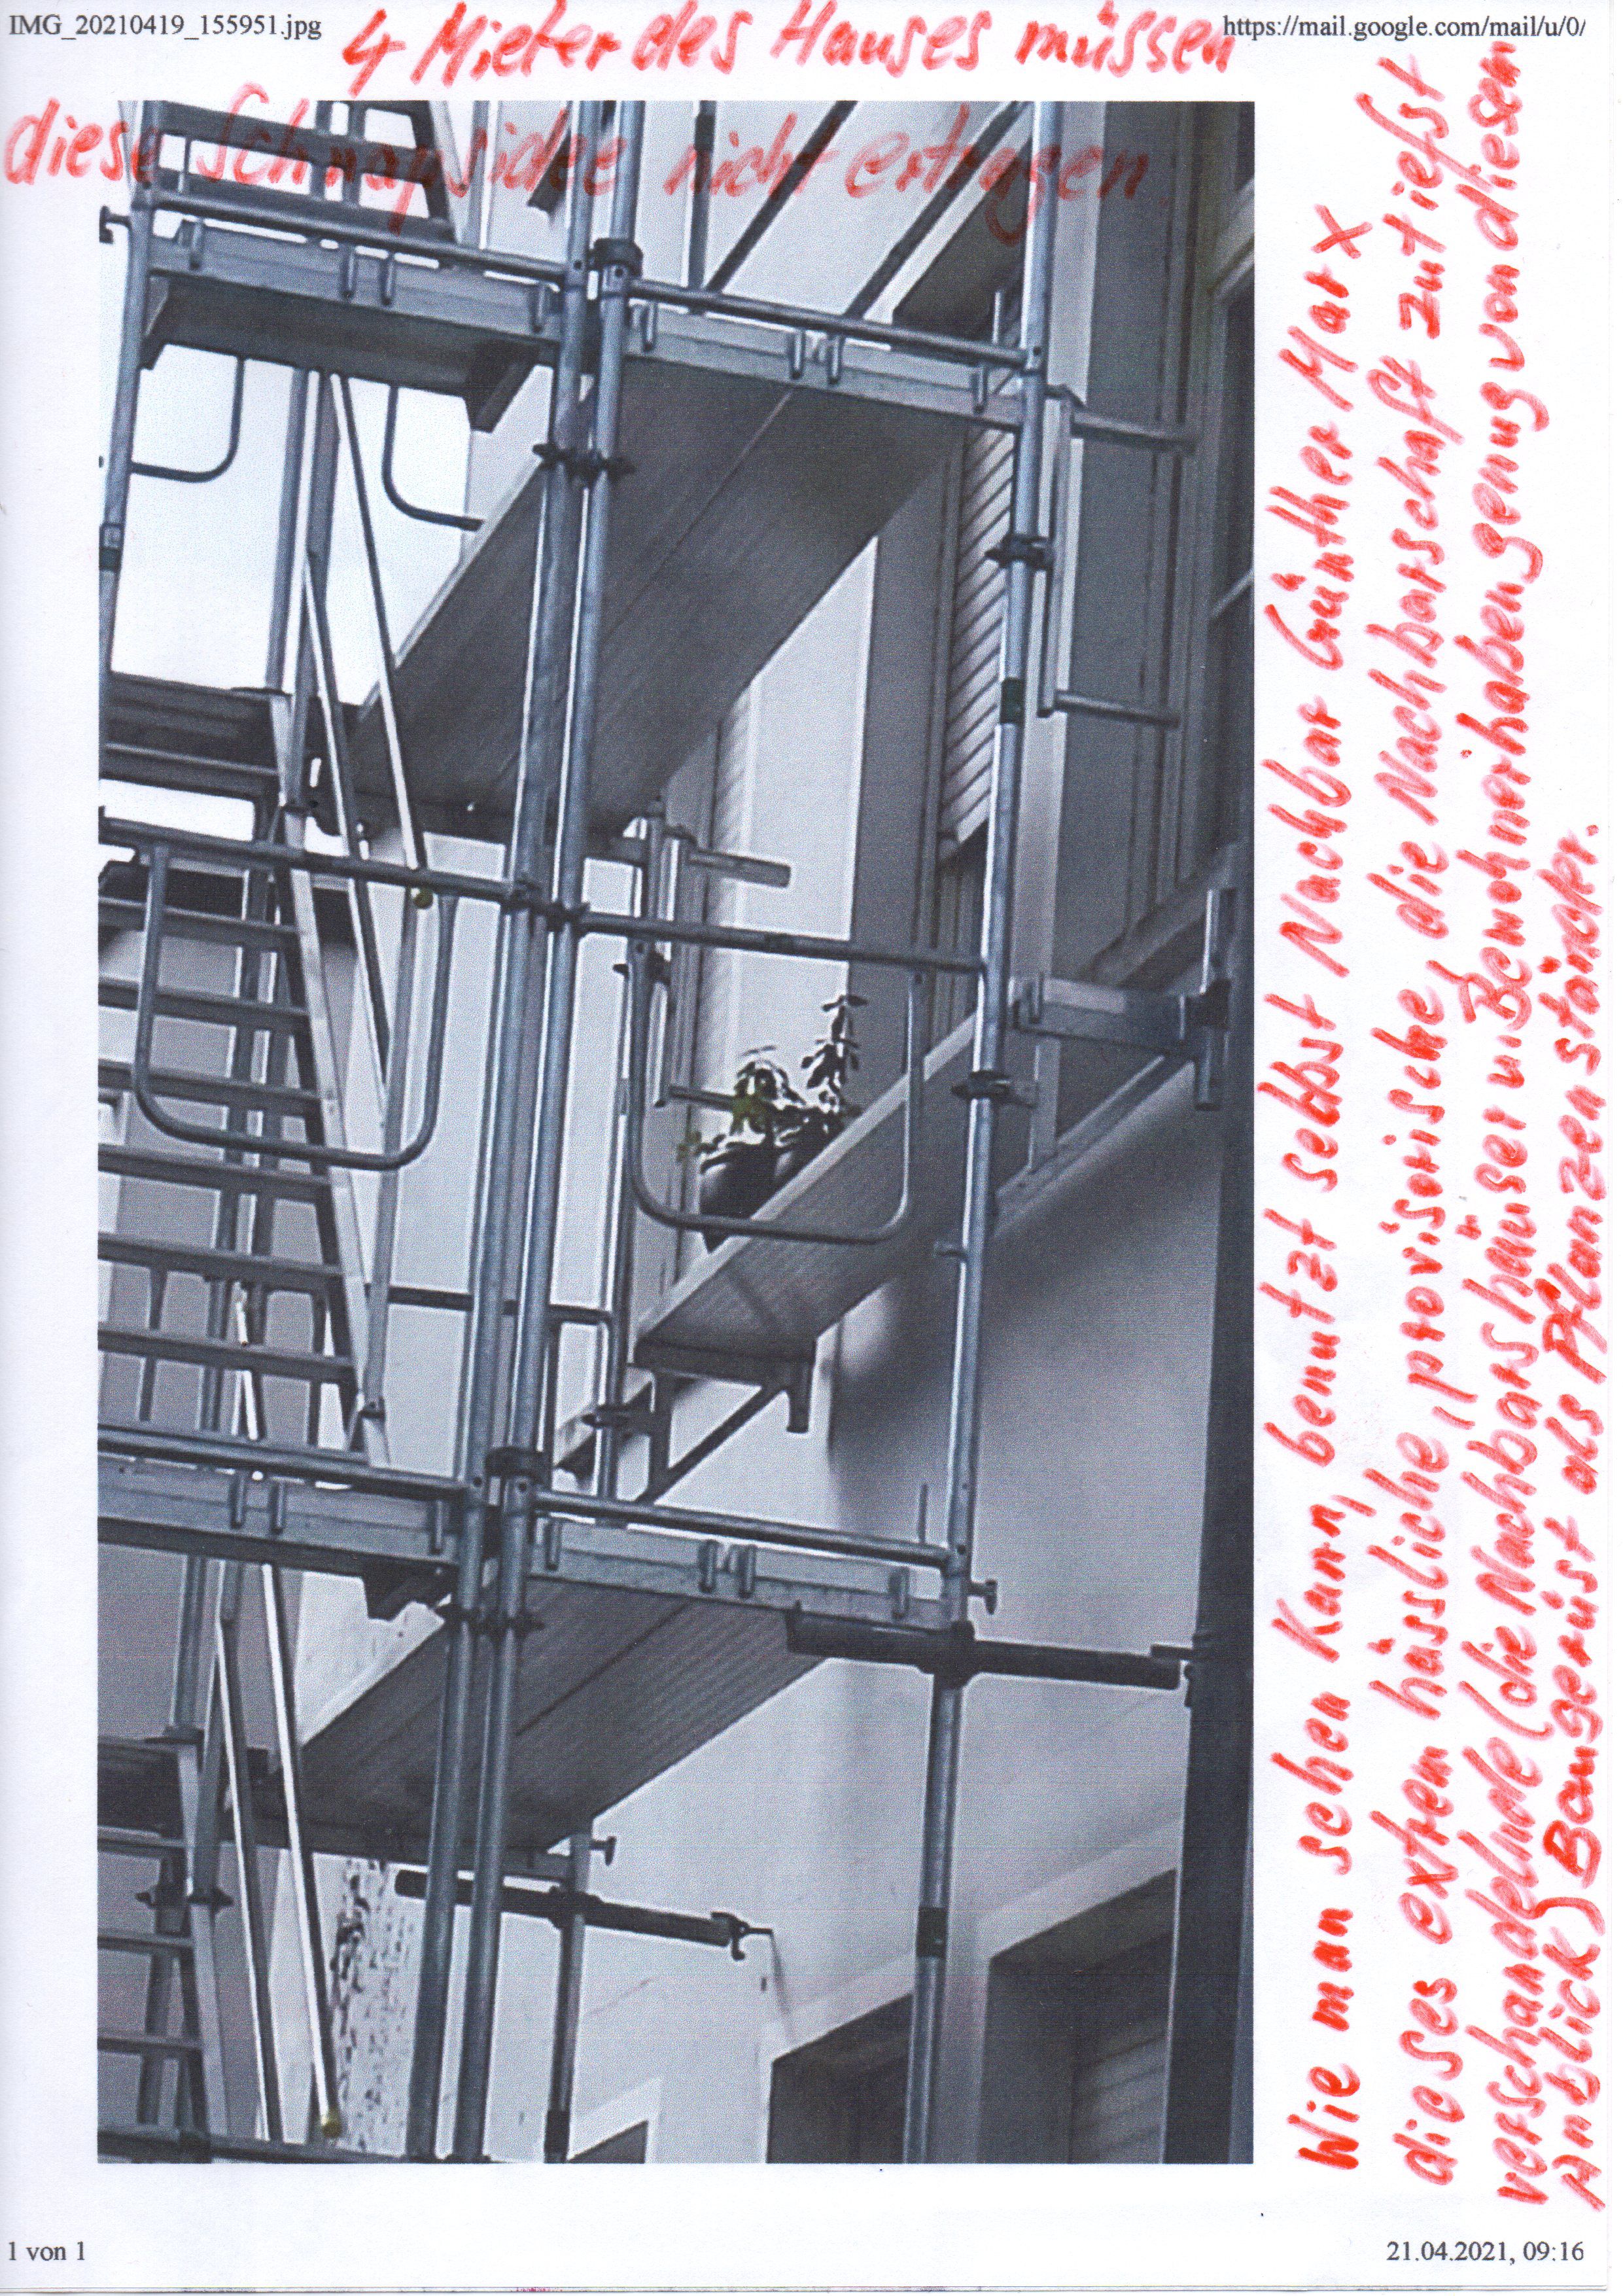 IMG_20210419_155951.jpg
https://mail.google.com/mail/u/0/
4 Mieter des Hauses müssen
diese Schnapsidee nicht ertragen.
Wie man sehen kann, benutzt selbst Nachbar Günther Marx
dieses extrem hässliche, provisorische, die Nachbarschaft zutiefst
verschandelnde (die Nachbarshäuser u. Bewohner haben genug von diesen
Anblick) Baugerüst als Pflanzenständer.
1 von 1
21.04.2021, 09:16